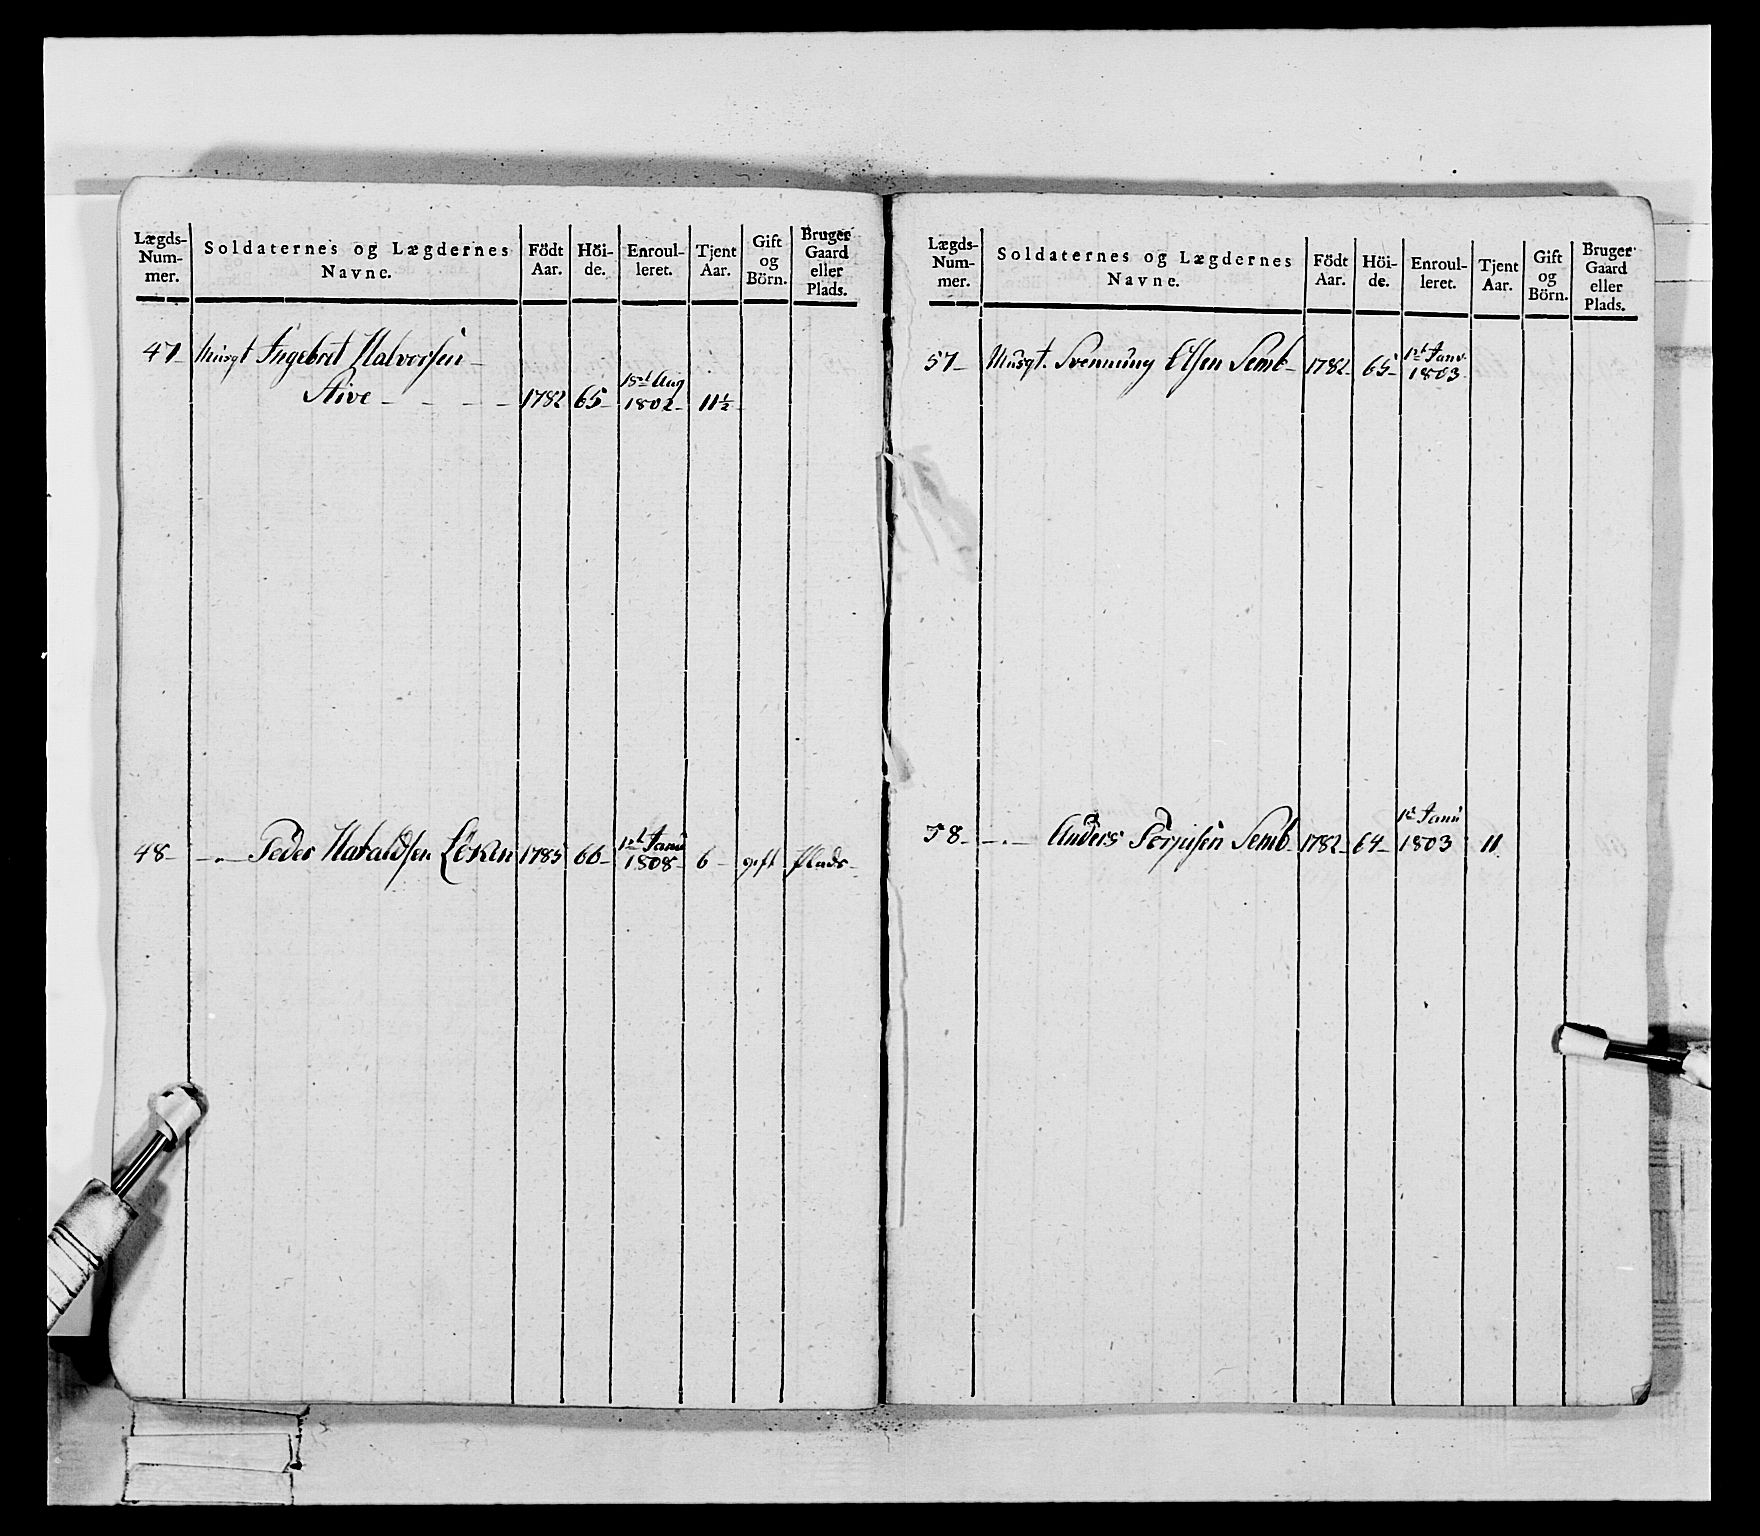 Lægds-
Num-
mer.
Soldaternes og Lægdernes
Navne.
Födt
Aar.
Höi-
de.
Enroul-
leret.
Tjent
Aar.
Gift
og
Börn.
Bruger
Gaard
eller
Plads.
47 Musqt Ingebret Halvorsen
1782 65 1802 11½
48 Peder Haraldsen 1785 66 1808 6 gift Plads
Lægds-
Num-
mer.
Soldaternes og Lægdernes
Navne.
Födt
Aar.
Höi-
de.
Enroul-
leret.
Tjent
Aar.
Gift
og
Börn.
Bruger
Gaard
eller
Plads.
57 Musqt. Svennung Semb 1782 65 1st Janv.
1803
58 Anders Semb 1782 64 1803 11